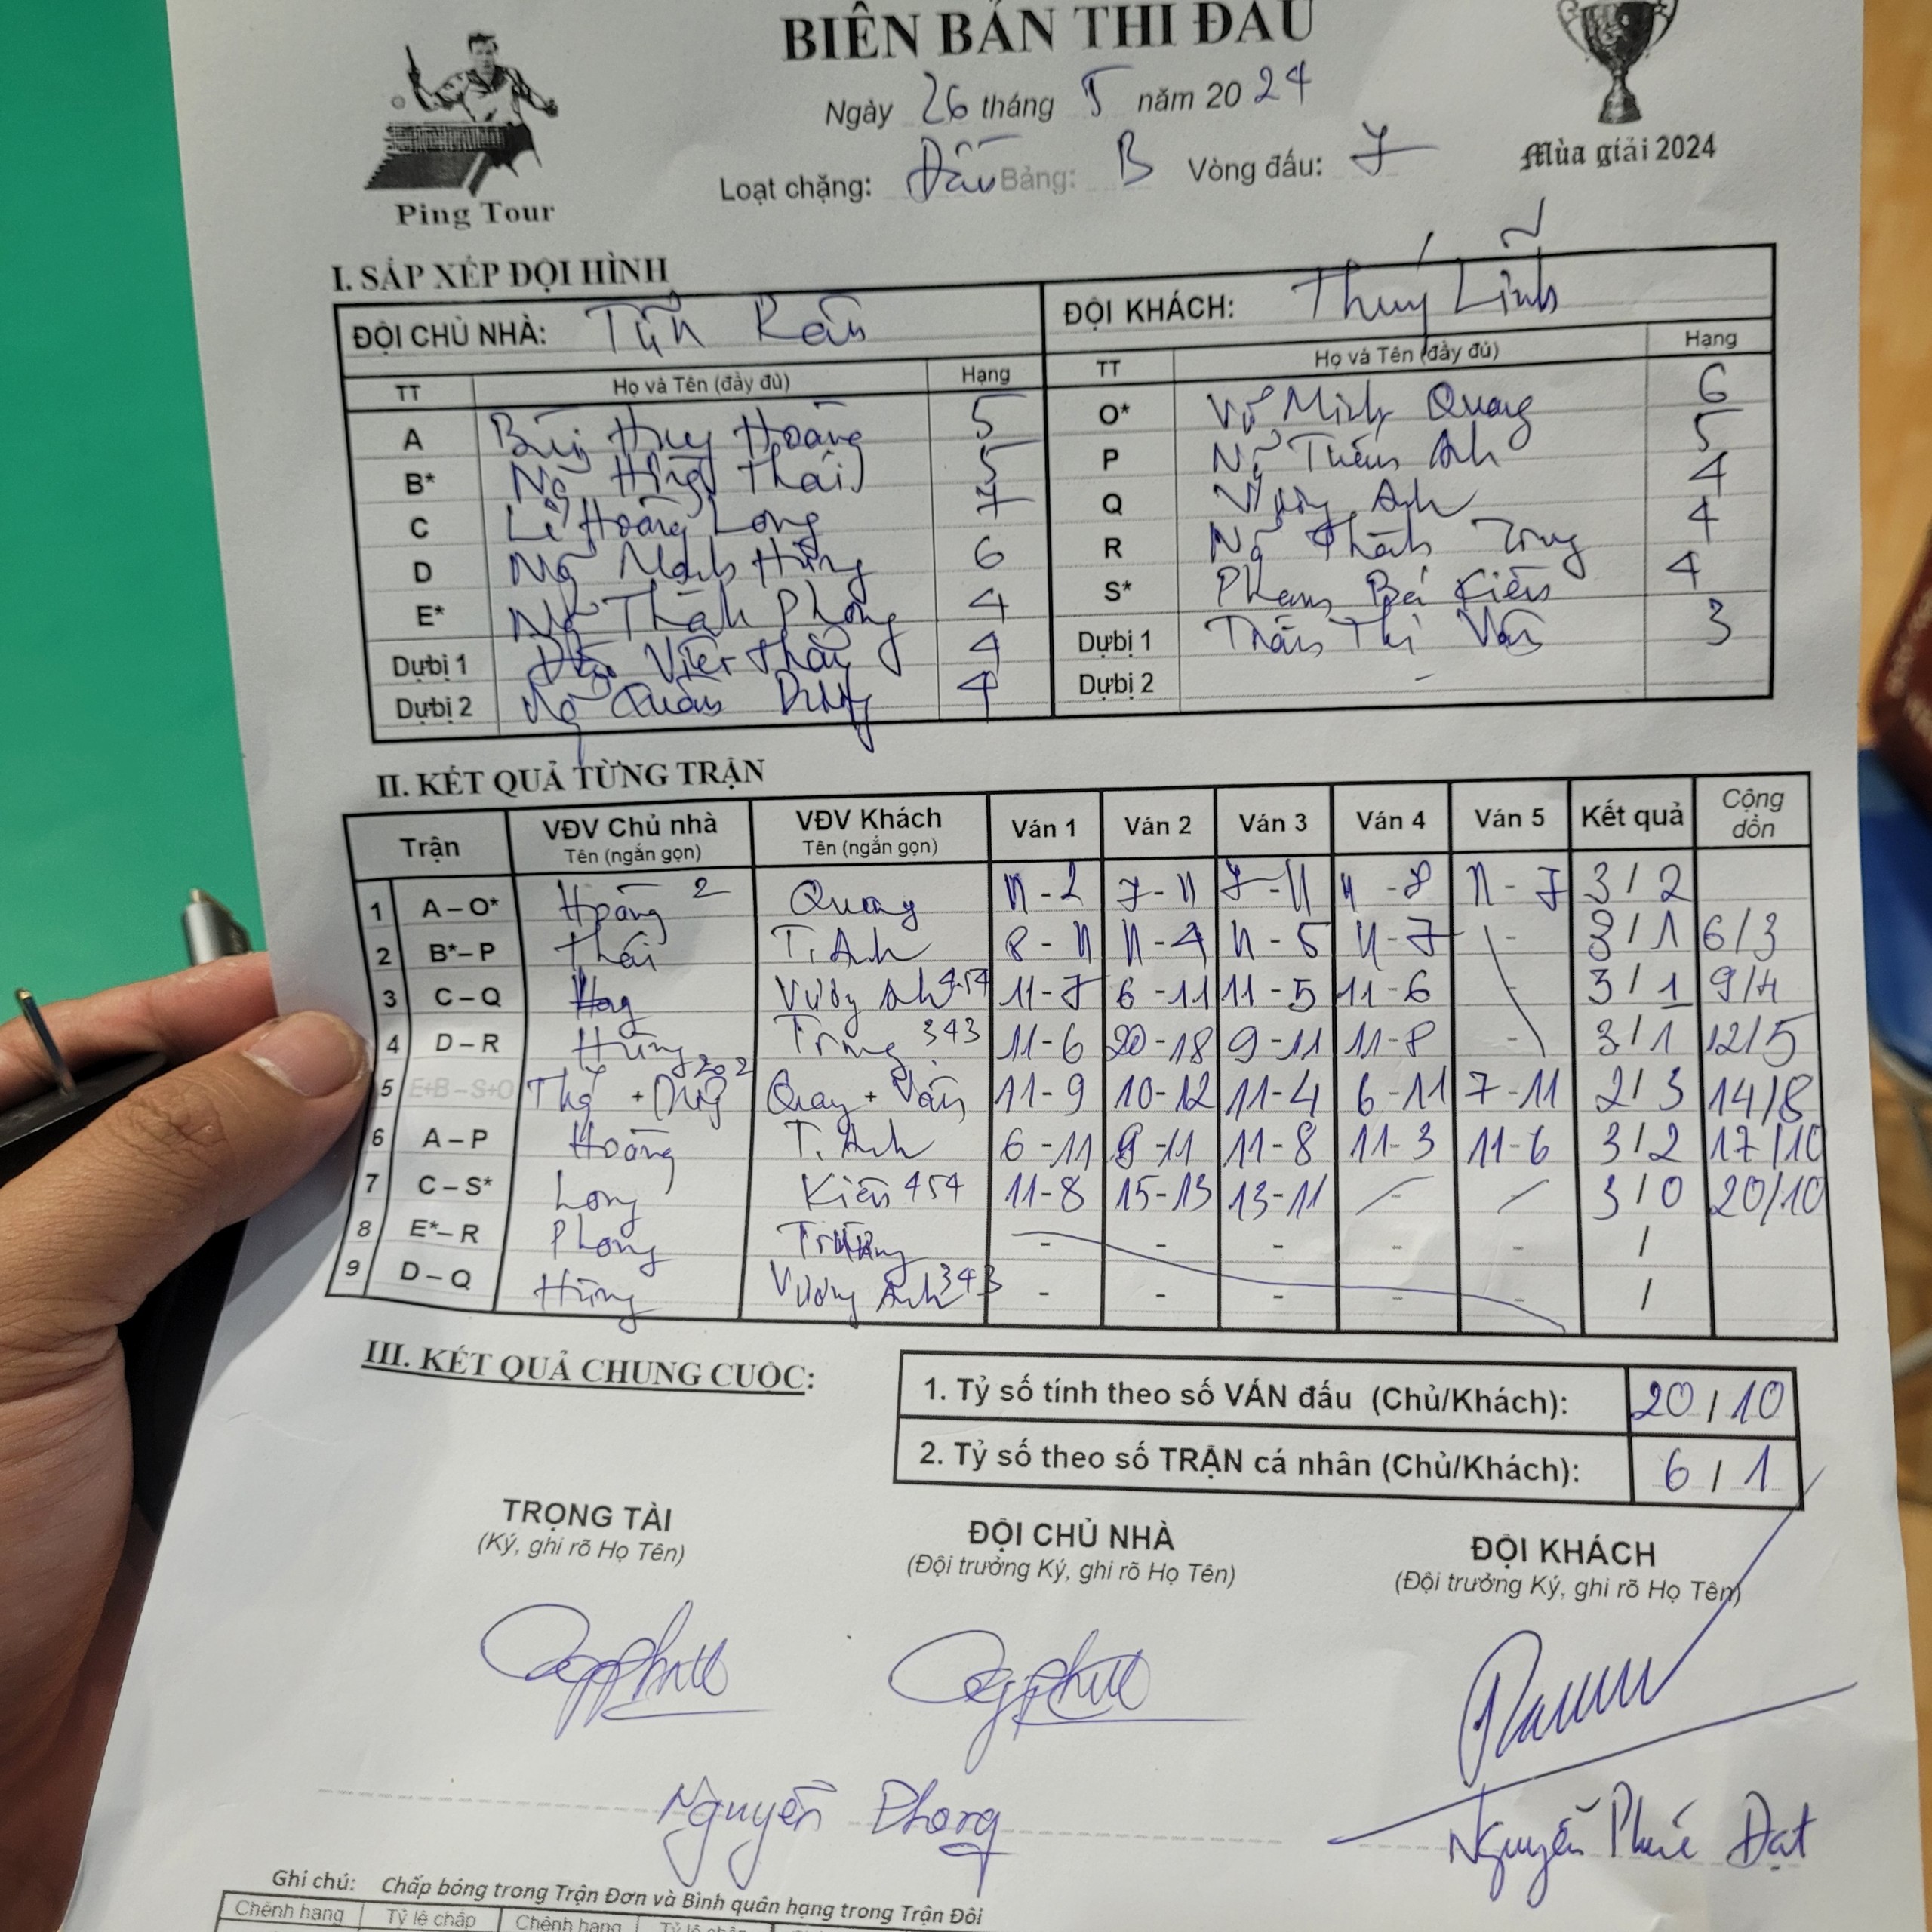 BIÊN BẢN THI ĐẤU
Ngày 26 tháng 5 năm 20 24
Loạt chặng: Đấu Bảng: B Vòng đấu: 7
Ping Tour
Mùa giải 2024
I. SẮP XẾP ĐỘI HÌNH
ĐỘI CHỦ NHÀ: ĐỘI KHÁCH: Thuý Linh
TT Họ và Tên (đầy đủ) Hạng TT Họ và Tên (đầy đủ) Hạng
A Bùi Huy Hoàng 5 O* Võ Minh Quang 6
B* Ng Hồng Thái 5 P Ng Tuấn Anh 5
C Lê Hoàng Long 7 Q Vương Anh 4
D Ng Mạnh Hùng 6 R Ng Thành Trung 4
E* Ng Thành Phong 4 S* Phạm Bá Kiên 4
Dự bị 1 Việt 4 Dự bị 1 Trần Thị Vân 3
Dự bị 2 Ng Quân Dũng 4 Dự bị 2 -
II. KẾT QUẢ TỪNG TRẬN
Trận VĐV Chủ nhà VĐV Khách Ván 1 Ván 2 Ván 3 Ván 4 Ván 5 Kết quả Cộng dồn
Tên (ngắn gọn) Tên (ngắn gọn)
1 A – O* Hoàng 2 Quang 11 - 2 7 - 11 7 - 11 11 - 8 11 - 7 3 / 2
2 B* – P Thái T. Anh 8 - 11 11 - 4 11 - 5 11 - 7 - 3 / 1 6/3
3 C – Q Vương Anh 454 11 - 7 6 - 11 11 - 5 11 - 6 - 3 / 1 9/4
4 D – R Hùng Trung 343 11 - 6 20 - 18 9 - 11 11 - 8 - 3 / 1 12/5
5 E+B – S+O + Dũng 202 Quang + Vân 11 - 9 10 - 12 11 - 4 6 - 11 7 - 11 2 / 3 14/8
6 A – P Hoàng T. Anh 6 - 11 9 - 11 11 - 8 11 - 3 11 - 6 3 / 2 17/10
7 C – S* Long Kiên 454 11 - 8 15 - 13 13 - 11 - - 3 / 0 20/10
8 E* – R Phong Trung - - - - - /
9 D – Q Hùng Vương Anh 343 - - - - - /
III. KẾT QUẢ CHUNG CUỘC:
1. Tỷ số tính theo số VÁN đấu (Chủ/Khách): 20 / 10
2. Tỷ số theo số TRẬN cá nhân (Chủ/Khách): 6 / 1
TRỌNG TÀI ĐỘI CHỦ NHÀ ĐỘI KHÁCH
(Ký, ghi rõ Họ Tên) (Đội trưởng Ký, ghi rõ Họ Tên) (Đội trưởng Ký, ghi rõ Họ Tên)
Nguyễn Phong Nguyễn Phúc Đạt
Ghi chú: Chấp bóng trong Trận Đơn và Bình quân hạng trong Trận Đôi
Chênh hạng Tỷ lệ chấp Chênh hạng Tỷ lệ chấp